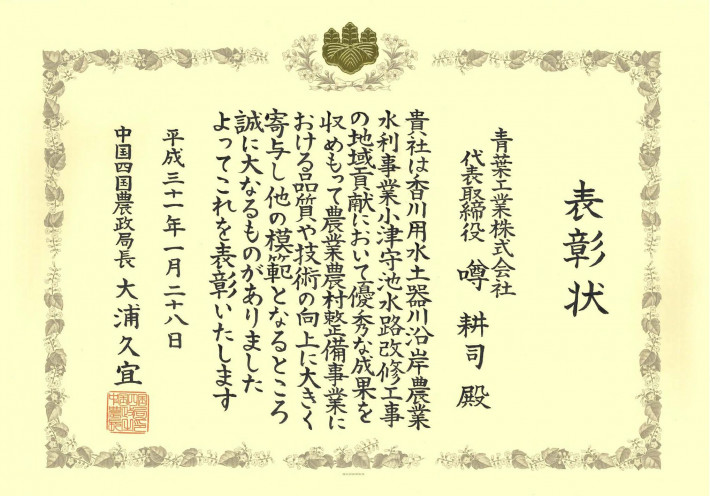 表彰状
青葉工業株式会社
代表取締役 噂 耕司 殿
貴社は香川用水土器川沿岸農業
水利事業小津守池水路改修工事
の地域貢献において優秀な成果を
収めもって農業農村整備事業に
おける品質や技術の向上に大きく
寄与し他の模範となるところ
誠に大なるものがありました
よってこれを表彰いたします
平成三十一年一月二十八日
中国四国農政局長 大浦久宜